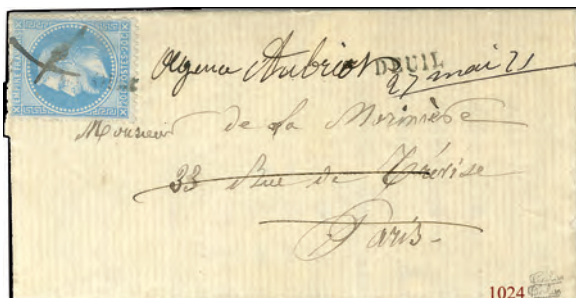 Agence Aubriot DEUIL
27 mai 71
Monsieur de la Morinière
33 Rue de Trévise
Paris-
1024